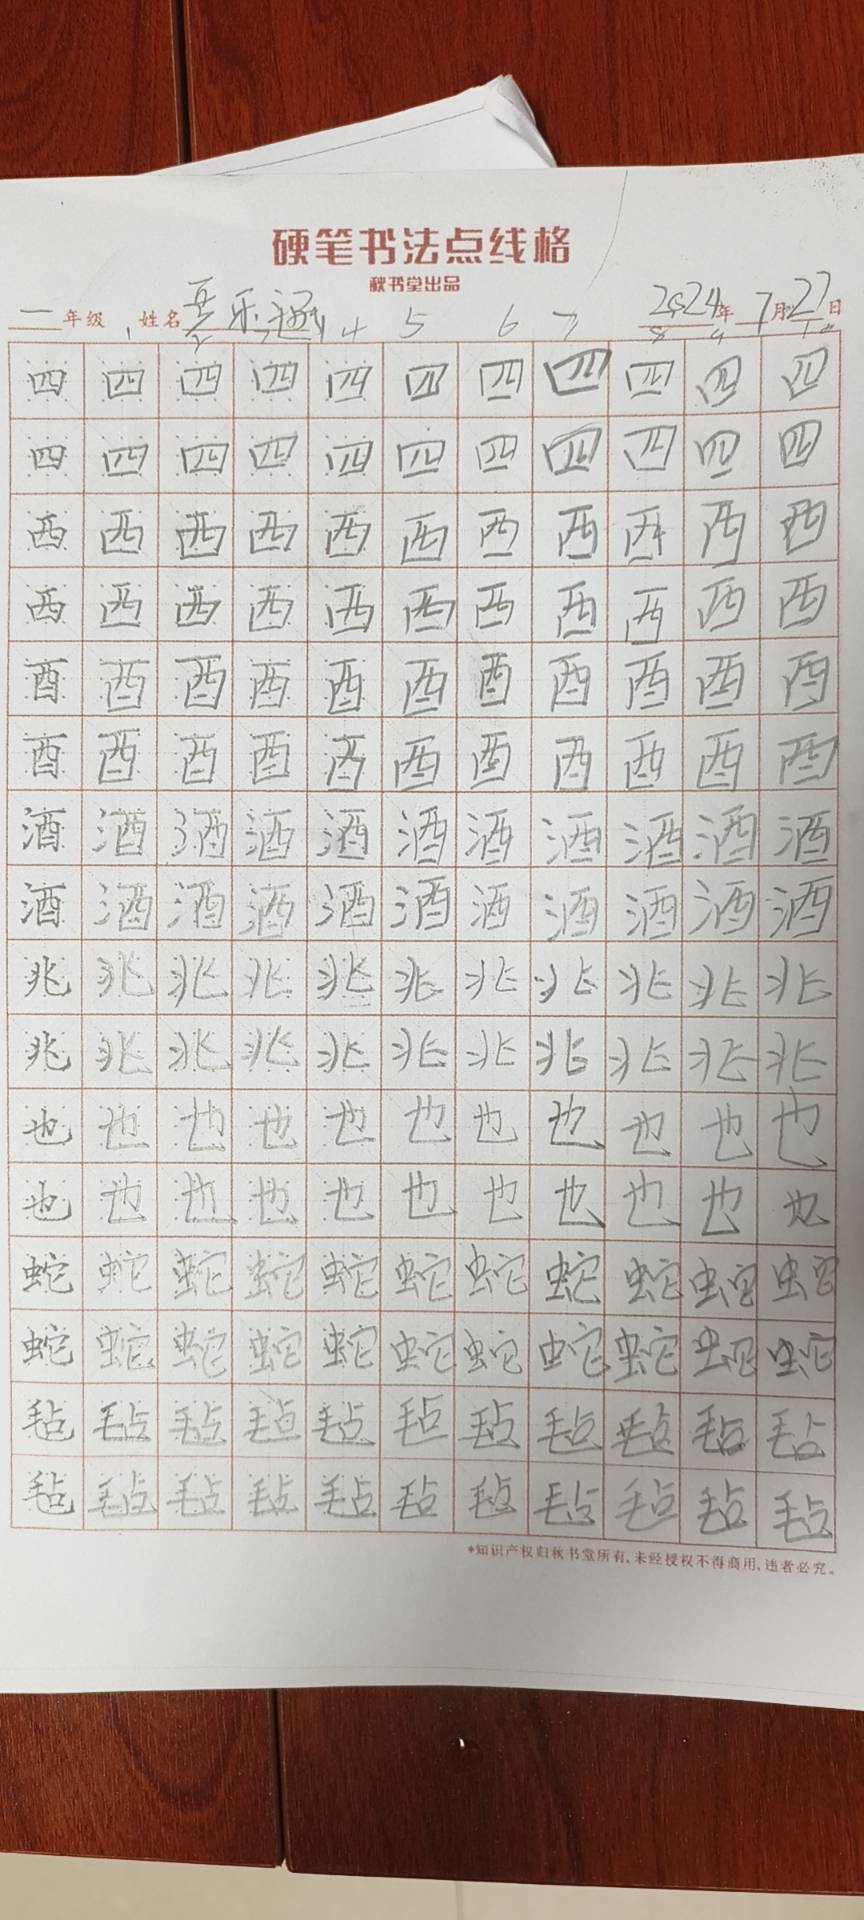 硬笔书法点线格
秋书堂出品
一年级 姓名 乐 2024年7月27日
1 2 3 4 5 6 7 8 9 10
四四四四四四四四四四四
四四四四四四四四四四四
西西西西西西西西西西西
西西西西西西西西西西西
酉酉酉酉酉酉酉酉酉酉酉
酉酉酉酉酉酉酉酉酉酉酉
酒酒酒酒酒酒酒酒酒酒酒
酒酒酒酒酒酒酒酒酒酒酒
兆兆兆兆兆兆兆兆兆兆兆
兆兆兆兆兆兆兆兆兆兆兆
也也也也也也也也也也也
也也也也也也也也也也也
蛇蛇蛇蛇蛇蛇蛇蛇蛇蛇蛇
蛇蛇蛇蛇蛇蛇蛇蛇蛇蛇蛇
毡毡毡毡毡毡毡毡毡毡毡
毡毡毡毡毡毡毡毡毡毡毡
*知识产权归秋书堂所有,未经授权不得商用,违者必究。